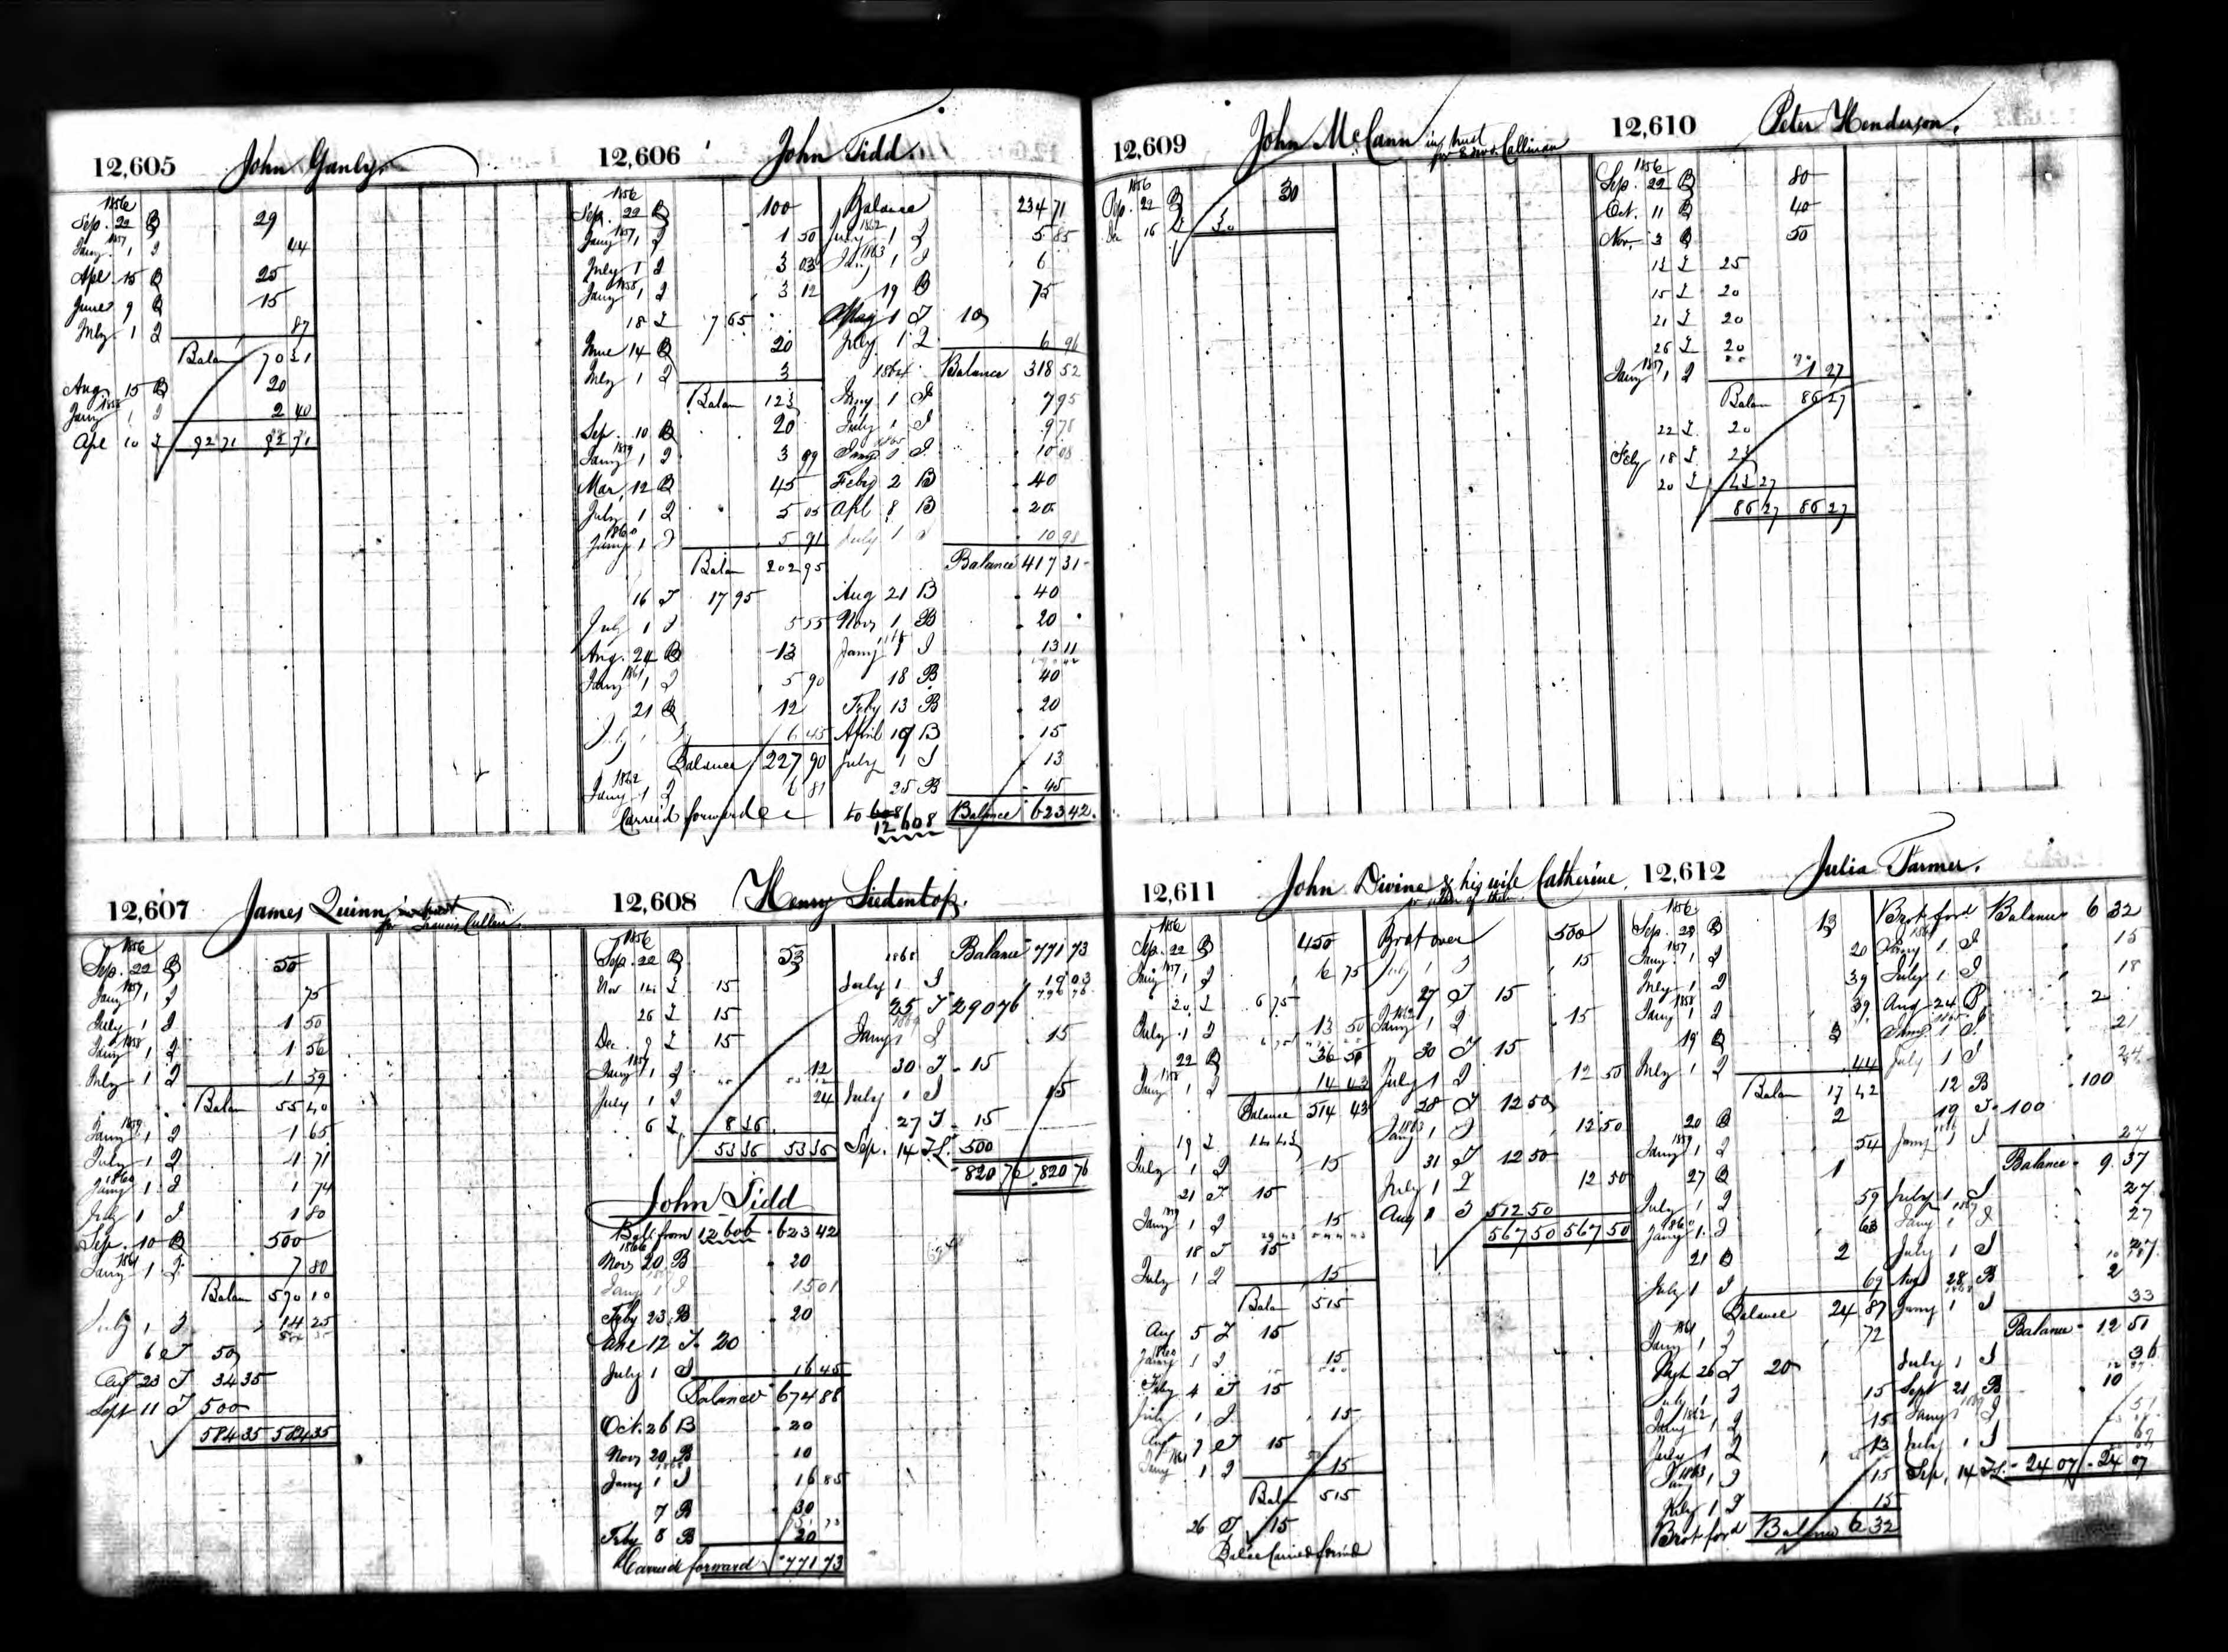 12,605 John Ganly
1856
Sep. 22 B 29
1857
Jany 1 I 44
Apl 15 B 25
June 9 B 15
July 1 I 87
Balan 70 31
Aug 15 B 20
1858
Jany 1 I 2 40
Apl 10 I 92 71 92 71
12,606 John Tidd
1856
Sep. 22 B 100
1857
Jany 1 I 1 50
July 1 I 3 03
1858
Jany 1 I 3 12
18 I 7 65
June 14 B 20
July 1 I 3
Balan 123
Sep. 10 B 20
1859
Jany 1 I 3 99
Mar. 12 B 45
July 1 I 5 05
1860
Jany 1 I 5 91
Balan 202 95
16 I 17 95
July 1 I 5 55
Aug. 24 B 13
1861
Jany 1 I 5 90
21 B 12
July 1 I 6 45
Balance 227 90
1862
Jany 1 I 6 81
Carried forward
Balance 234 71
1862
July 1 I 5 85
1863
Jany 1 I 6
19 B 75
May 1 I 10
July 1 I 6 96
1864 Balance 318 52
Jany 1 I 7 95
July 1 I 9 78
1865
Jany 1 I 10 08
Feby 2 B 40
Apl 8 B 20
July 1 I 10 98
Balance 417 31
Aug 21 B 40
Nov 1 B 20
Jany 1 I 13 11
18 B 40
Feby 13 B 20
April 19 B 15
July 1 I 13
25 B 45
to 12608 Balance 623 42
12,607 James Quinn in trust
for Francis Cullen
1856
Sep. 22 B 50
1857
Jany 1 I 75
July 1 I 1 50
1858
Jany 1 I 1 56
July 1 I 1 59
Balan 55 40
1859
Jany 1 I 1 65
July 1 I 1 71
1860
Jany 1 I 1 74
July 1 I 1 80
Sep. 10 B 500
1861
Jany 1 I 7 80
Balan 570 10
July 1 I 14 25
6 I 50
Aug 23 I 34 35
Sept 11 I 500
584 35 584 35
12,608 Henry Siedentop.
1856
Sep. 22 B 53
Nov 14 I 15
26 I 15
Dec. 9 I 15
1857
Jany 1 I 12
July 1 I 24
6 I 8 36
53 36 53 36
John Tidd
Ball from 12606 623 42
1866
Nov 20 B 20
Jany 1 I 15 01
Feby 23 B 20
June 12 I 20
July 1 I 16 45
Balance 674 88
Oct. 26 B 20
Nov 20 B 10
1868
Jany 1 I 16 85
7 B 30
Feby 8 B 20
Carried forward 771 73
1868 Balance 771 73
July 1 I 19 03
25 I 290 76
1869
Jany 1 I 15
30 I 15
July 1 I 15
27 I 15
Sep. 14 I 500
820 76 820 76
12,609 John McCann in trust
for Callinan
1856
Sep. 22 B 30
Dec 16 I 30
12,610 Peter Henderson.
1856
Sep. 22 B 80
Oct. 11 B 40
Nov. 3 B 50
I 25
15 I 20
21 I 20
26 I 20
1857
Jany 1 I 1 27
Balan 86 27
22 I 20
Feby 18 I 23
20 I 43 27
86 27 86 27
12,611 John Divine & his wife Catherine.
or either of them
1856
Sep. 22 B 450
1857
Jany 1 I 6 75
20 I 6 75
July 1 I 13 50
22 B 36 50
1858
Jany 1 I 14 43
Balance 514 43
19 I 14 43
July 1 I 15
21 I 15
1859
Jany 1 I 15
18 I 15
July 1 I 15
Balan 515
Aug 5 I 15
1860
Jany 1 I 15
Feby 4 I 15
July 1 I 15
Aug 7 I 15
1861
Jany 1 I 15
Balan 515
26 I 15
Balce Carried forwd
Brot over 500
July 1 I 15
27 I 15
1862
Jany 1 I 15
30 I 15
July 1 I 12 50
28 I 12 50
1863
Jany 1 I 12 50
31 I 12 50
July 1 I 12 50
Aug 8 I 512 50
567 50 567 50
12,612 Julia Farmer.
1856
Sep. 22 B 13
1857
Jany 1 I 20
July 1 I 39
1858
Jany 1 I 39
19 B 3
July 1 I 44
Balan 17 42
20 B 2
1859
Jany 1 I 54
27 B 1
July 1 I 59
1860
Jany 1 I 63
21 B 2
July 1 I 69
Balance 24 87
1861
Jany 1 I 72
26 I 20
July 1 I 15
1862
Jany 1 I 15
July 1 I 13
1863
Jany 1 I 15
July 1 I 15
Brot ford Balance 6 32
Brot ford Balance 6 32
Jany 1 I 15
July 1 I 18
Aug 24 B 2
1865
Jany 1 I 21
July 1 I 24
12 B 100
19 I 100
1866
Jany 1 I 27
Balance 9 37
July 1 I 27
1867
Jany 1 I 27
July 1 I 27
Aug 28 B 2
1868
Jany 1 I 33
Balance 12 51
July 1 I 36
Sept 21 B 10
1869
Jany 1 I 51
July 1 I 69
Sep. 14 I 24 07 24 07